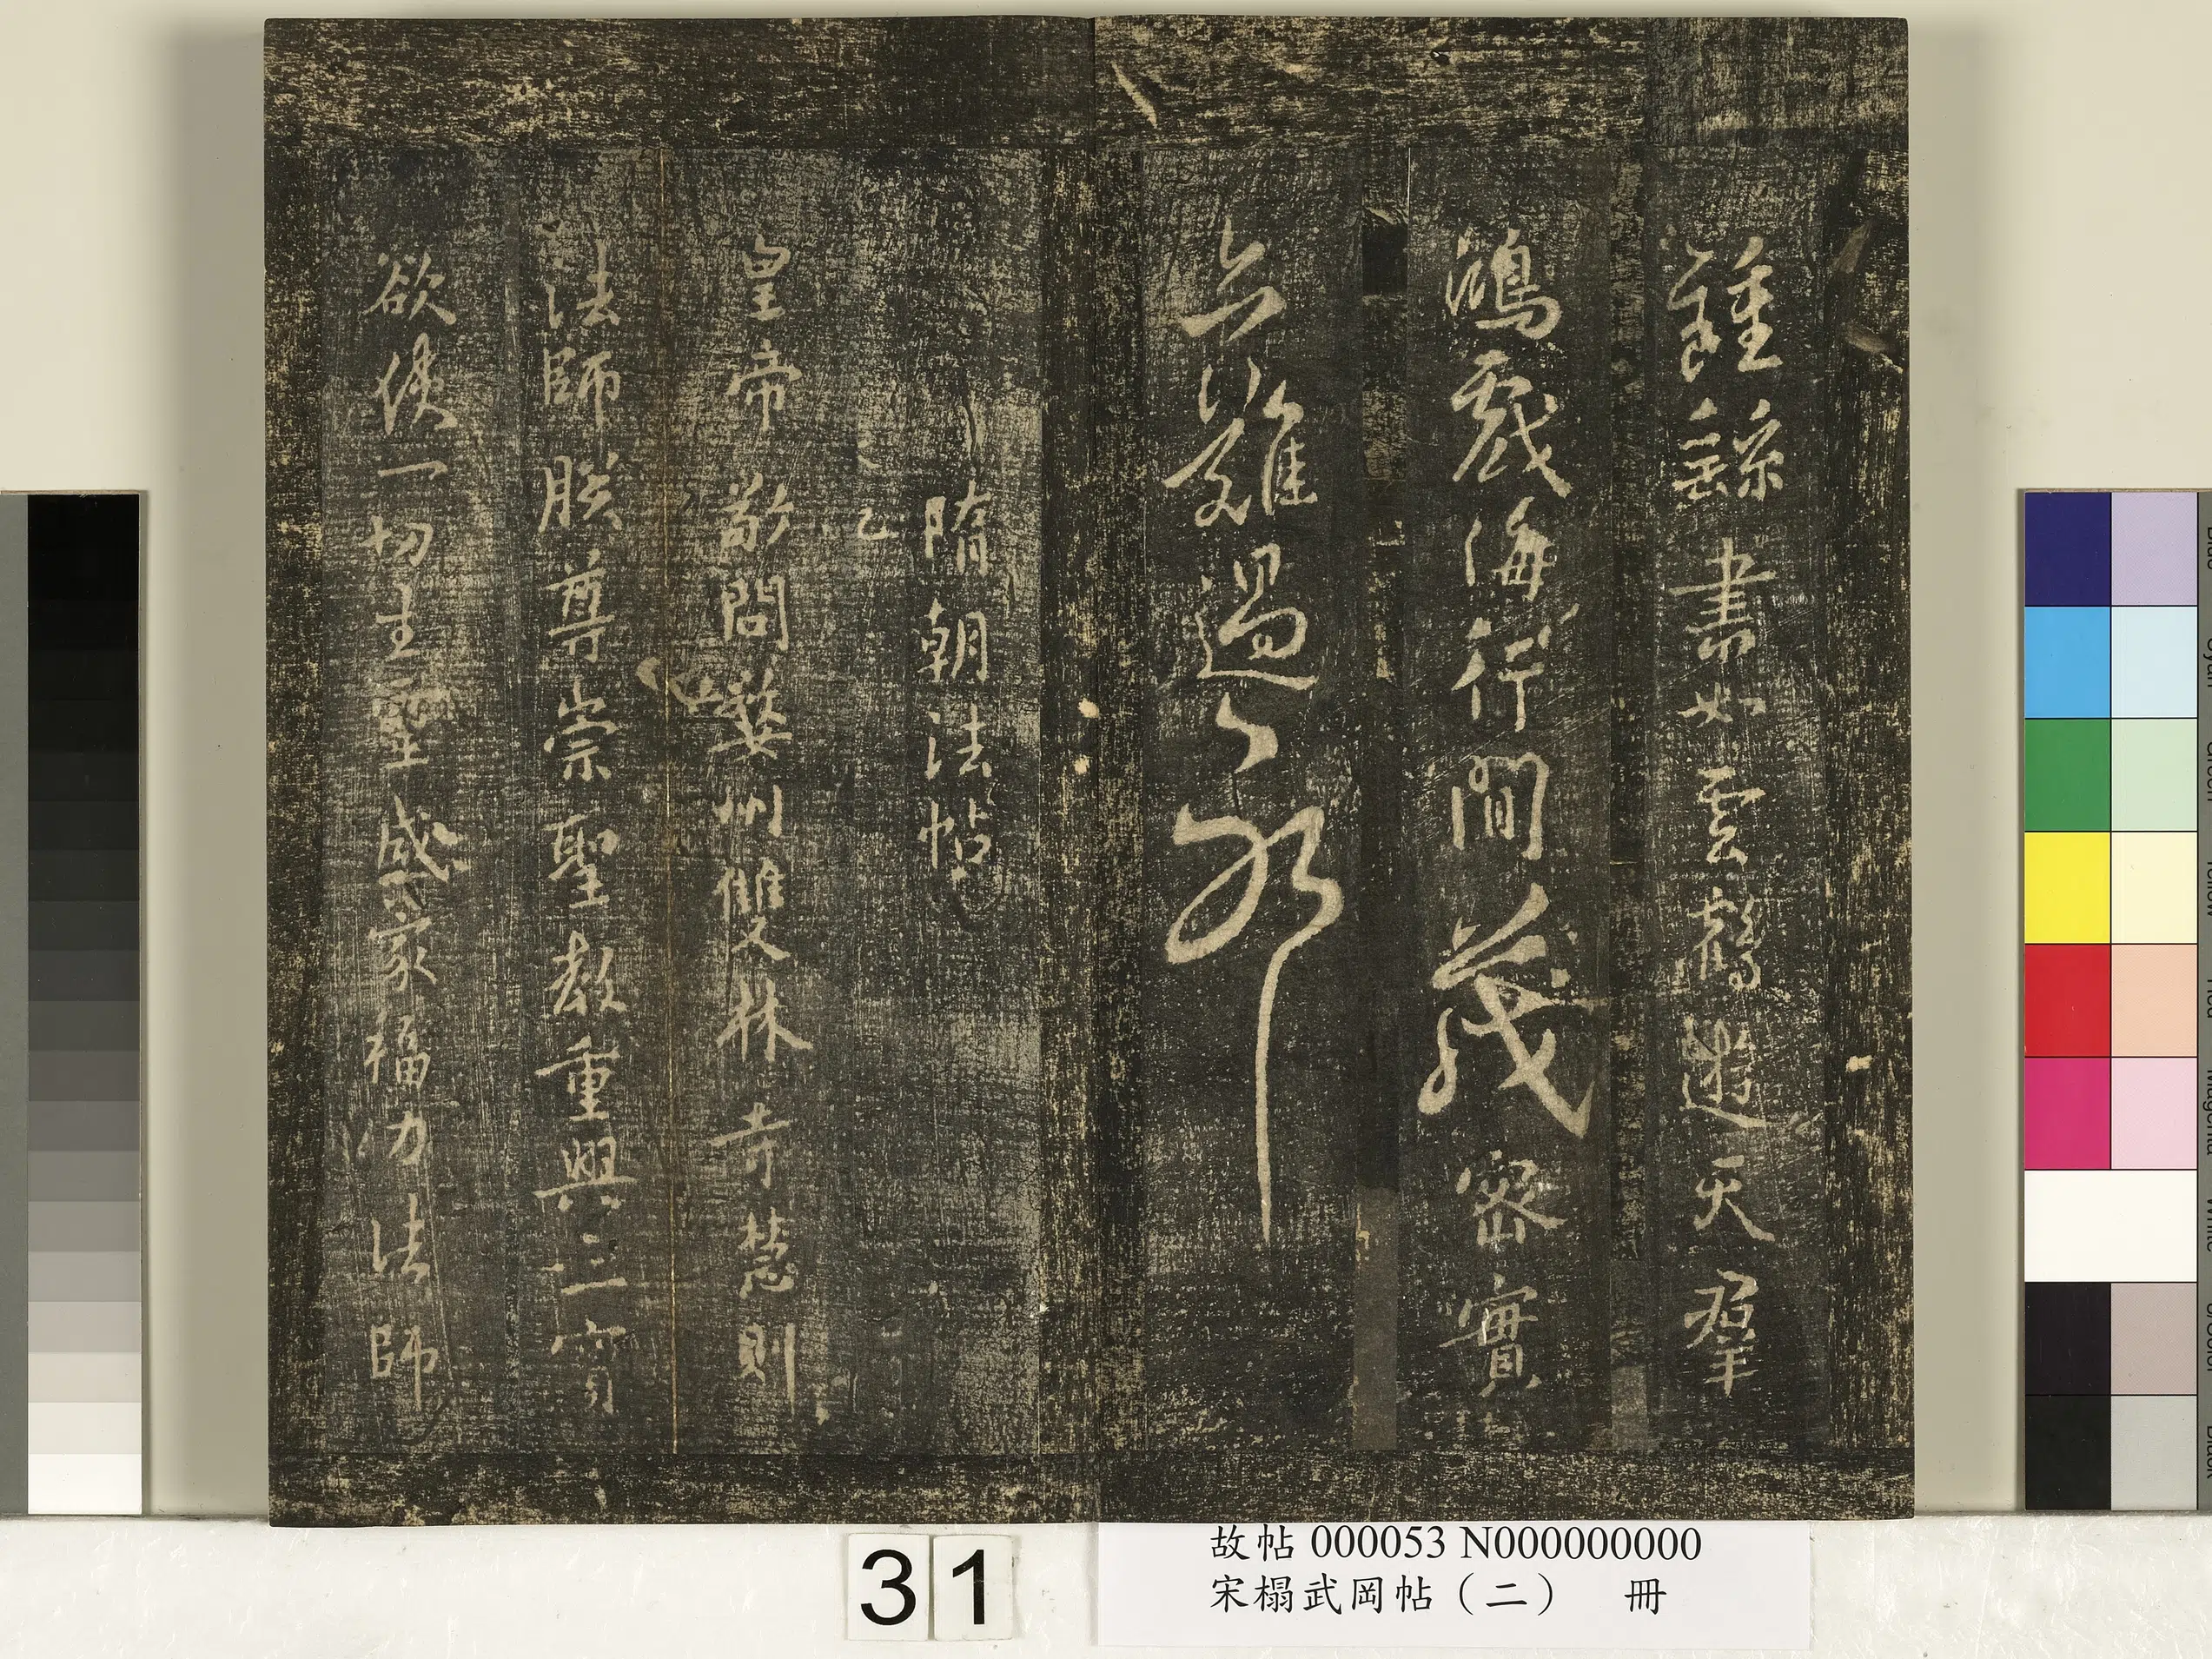 鍾繇書如雲鶴遊天羣
鴻戲海行間茂密實
亦難過之耶
隋朝法帖
皇帝敬問婺州雙林寺慧則
法師朕尊崇聖教重興三寶
欲使一切生靈咸蒙福力法師
31
故帖 000053 N000000000
宋榻武岡帖（二） 冊